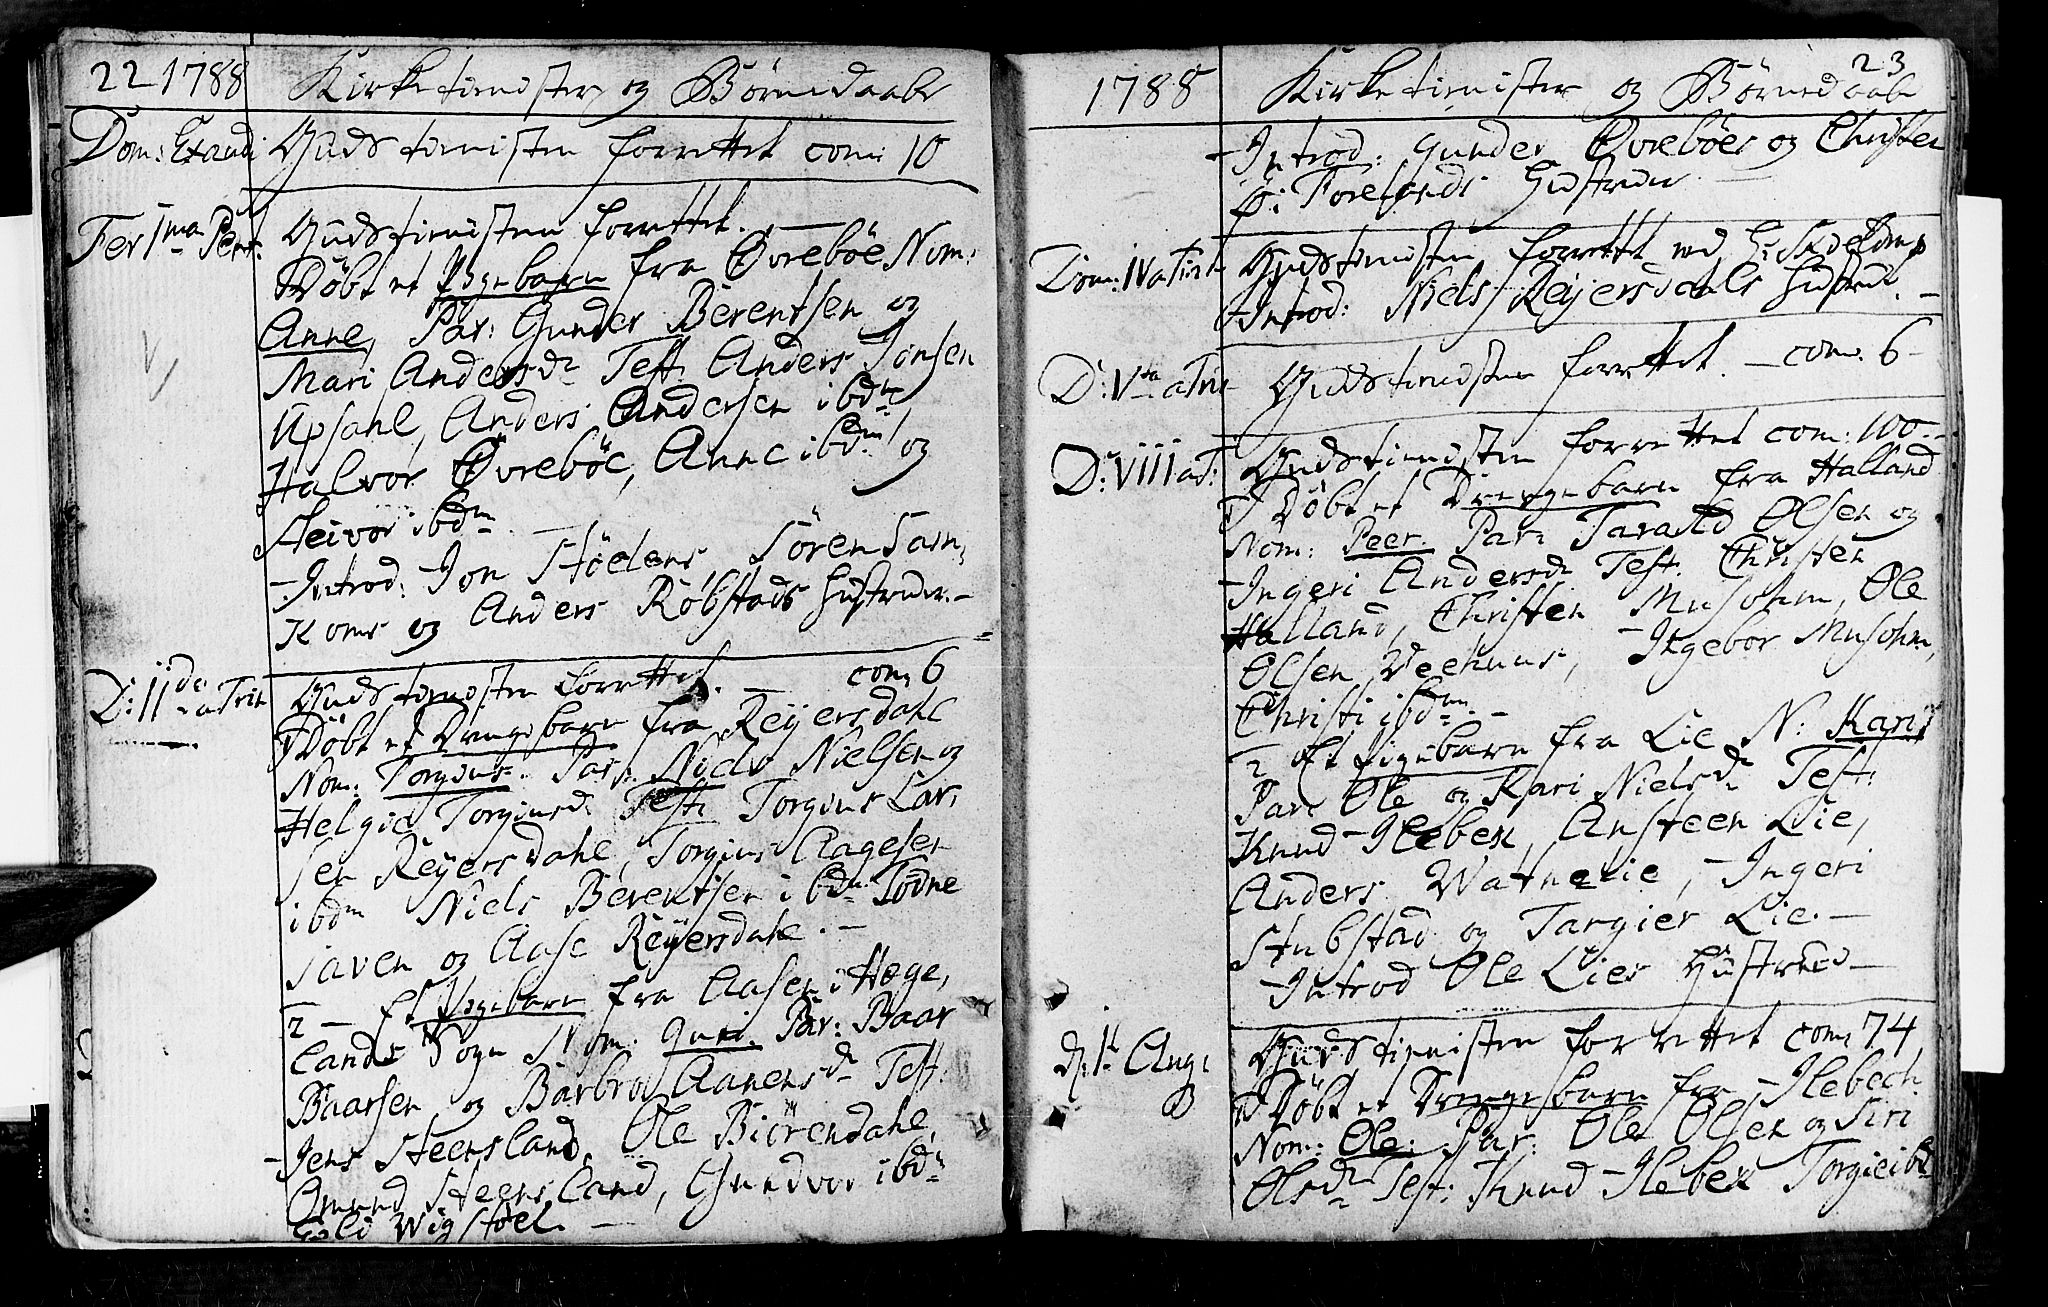 22 1788 Kirketienister og Börnedaabe
Dom: Exaudi Gudstienisten forrettet com: 10
Fer 1ma Pent: Gudstienisten forrettet.
Döbt et Pigebarn fra Øvreböe Nom:
Anne, Par: Gunder Berentsen og
Mari Andersd. Test: Anders Jonsen
Upsahl, Anders Andersen ibdm
Halvor Øvreböe, Anne ibdm og
Steivor ibdm
Introd: Jon Stöelens Sören
Koms og Anders Röbstads Hustruer.
D: IIda a Trin Gudstienisten forrettet. com: 6
1 Döbt et Drengebarn fra Reyersdahl
Nom: Torgius. Par: Niels Nielsen og
Helgie Torgiusd: Test: Torgius Lar-
sen Reyersdahl, Torgius Aagesen
ibdm Niels Berentsen ibdm Tödne
saven og Aase Reyersdahl.
2 Et Pigebarn fra Aasen i Hege-
lands Sogn Nom: Guri. Par: Baar
Baarsen og Barbro Aanensd. Test:
Jens Steensland, Ole Biörendahl,
Omund Steensland, Gundvor ibdm
Eli Wigstöel.
23
1788 Kirketienister og Börnedaabe
Introd: Gunder Øvreböes og Christen
Torelands Hustruer.
Dom: IV a Trin Gudstienisten forrettet ved Hr.
Introd: Niels Reyersdals Hustrue.
D: Vta a Trin Gudstienisten forrettet. com: 6
D: VIII a T: Gudstienisten forrettet com: 100
1 Döbt et Drengebarn fra Halland
Nom: Peer. Par: Tarald Olsen og
Ingeri Andersd. Test: Christen
Halland, Christen Musohm, Ole
Olsen Veehuus, Ingebor Musohm,
Christi ibdm.
2 Et Pigebarn fra Lie N: Kari
Par: Ole og Kari Nielsd. Test:
Knud Ilebek, Ansteen Lie,
Anders Watnelie, Ingeri
Stubstad og Targier Lie.
Introd Ole Lies Hustrue
D: 1t Aug: Gudstienisten forrettet com: 74
B 1 Döbt et Drengebarn fra Ilebech
Nom: Ole: Par: Ole Olsen og Siri
Olsd. Test: Knud Ilebek Torgie ibd